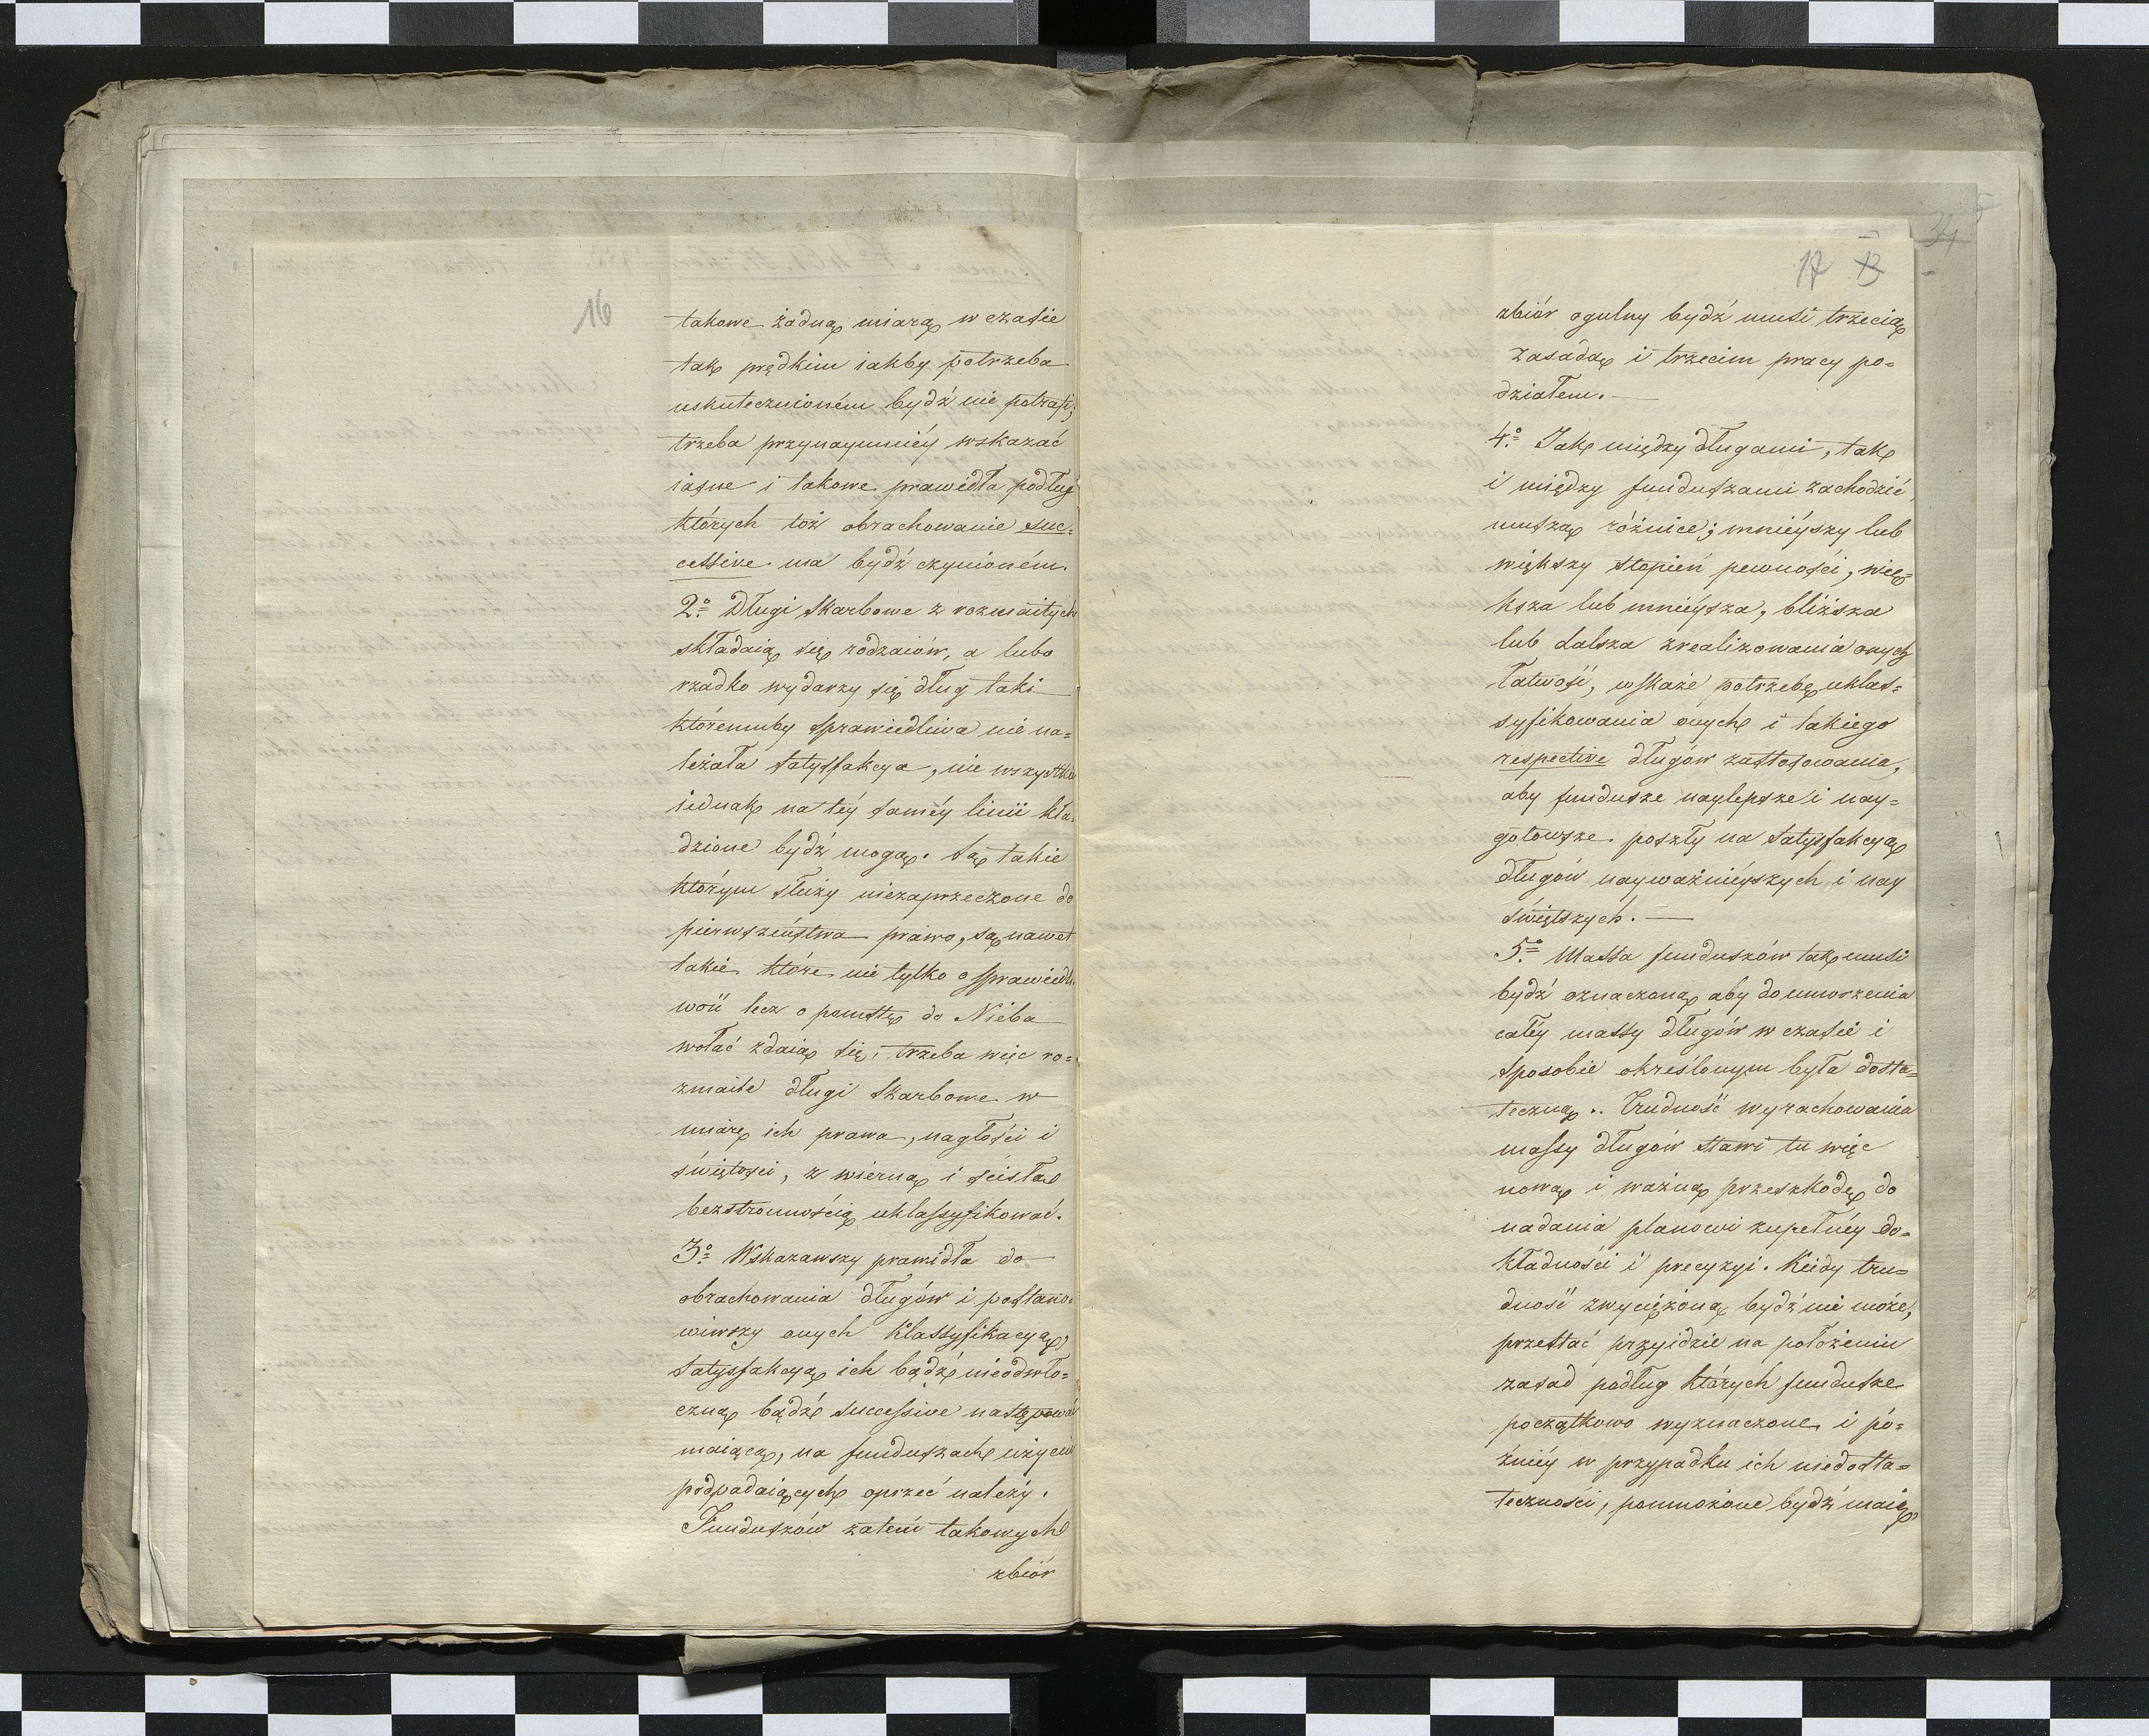 16
takowe żadną miarą w czasie
tak prędkim iakby potrzeba
uskutecznioném bydź nie potrafi;
trzeba przynaymniéy wskazać
iasne i takowe prawidła podług
których toż obrachowanie suc=
cessive ma bydź czynioném.
2.° Długi Skarbowe z rozmaitych
składaią się rodzaiów, a lubo
rzadko wydarzy się dług taki
któremuby sprawiedliwa nie na=
leżała satysfakcya, nie wszystkie
iednak na téy saméy linii kła=
dzione bydź mogą. Są takie
którym służy niezaprzeczone do
pierwszeństwa prawo, są nawet
takie które nie tylko o sprawiedli
wość lecz o pomstę do Nieba
wołać zdaią się, trzeba więc ro=
zmaite długi Skarbowe w
miarę ich prawa, nagłości i
świętości, z wierną i ścisłą
bezstronnością uklassyfikować.
3.° Wskazawszy prawidła do
obrachowania długów i postano=
wiwszy onych klassyfikacyą,
satysfakcyą ich bądź nieodwło=
czną bądź successive następować
maiącą, na funduszach użyciu
podpadaiących oprzeć należy.
Funduszów zatém takowych
zbiór
34
17 13
zbiór ogulny bydź musi trzecią
zasadą i trzecim pracy po=
działem.
4.° Jak między długami, tak
i między funduszami zachodzić
muszą różnice; mniéyszy lub
większy stopień pewności, więk=
ksza lub mniéysza, bliższa
lub dalsza zrealizowania onych
łatwość, wskaże potrzebę uklas=
syfikowania onych i takiego
respective długów zastosowania,
aby fundusze naylepsze i nay=
gotowsze poszły na satysfakcyą
długów nayważniéyszych i nay
świętszych.
5.° Massa funduszów tak musi
bydź oznaczoną aby do umorzenia
całéy massy długów w czasie i
sposobie określonym była dosta=
teczną. Trudność wyrachowania
massy długów stawi tu więc
nową i ważną przeszkodę do
nadania planowi zupełnéy do=
kładności i precyzyi. Kiedy tru=
dność zwyciężoną bydź nie może,
przestać przyidzie na położeniu
zasad podług których fundusze
początkowo wyznaczone i pó=
źniéy w przypadku ich niedosta=
teczności, pomnożone bydź maią